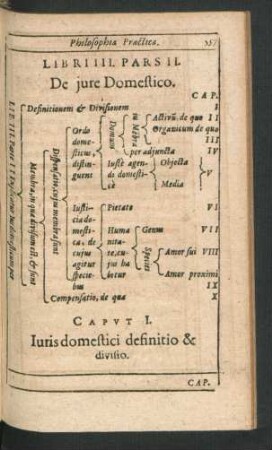 Philosophia Practica.
LIBRI IIII. PARS II.
De jure Domestico.
CAP.
Definitionem & Divisionem I
Membra, in quæ divisum est, & sunt
Dispensatio, cujus membra sunt
Ordo domesticus, distinguent
Domum
in Membra
Activū. de quo II
Organicum de quo III
per adjuncta IV
Iustè agendo domesticè
Objecta
Media
V
Iustitia domestica, de cujus agitur speciebus
Pietate VI
Humanitate, cujus habetur
Genus VII
Species
Amor sui VIII
Amor proximi IX
Compensatio, de qua X
CAPVT I.
Iuris domestici definitio &
divisio.
CAP.